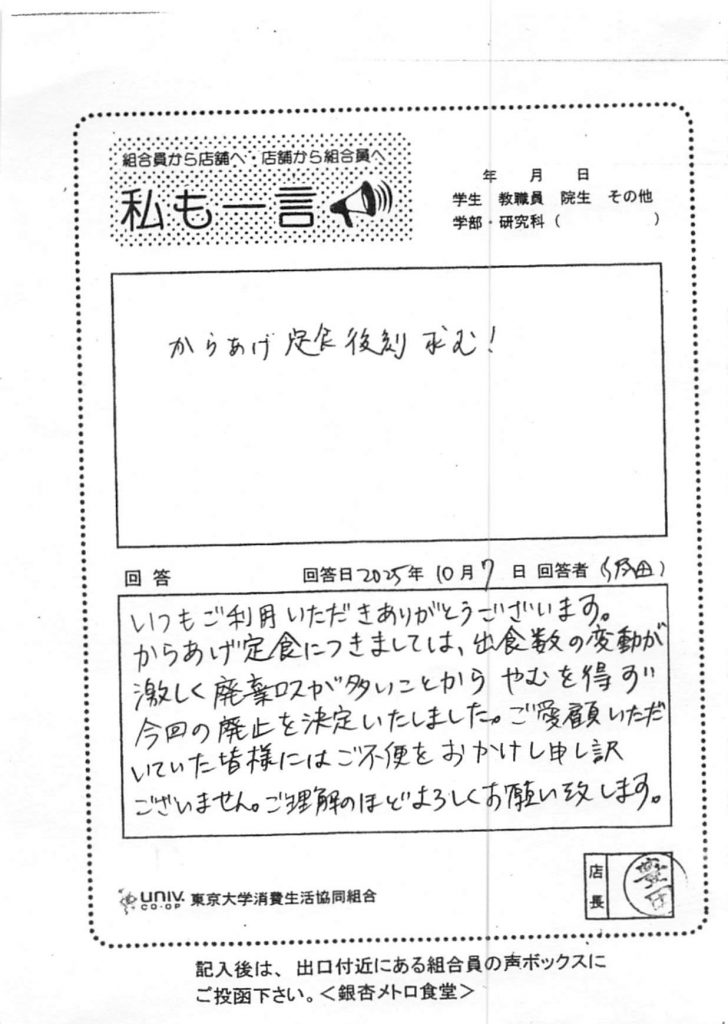 組合員から店舗へ・店舗から組合員へ
私も一言
年 月 日
学生 教職員 院生 その他
学部・研究科（ ）
からあげ定食復刻求む！
回答
回答日2025年10月7日 回答者（ 田）
いつもご利用いただきありがとうございます。
からあげ定食につきましては、出食数の変動が
激しく廃棄ロスが多いことから やむを得ず
今回の廃止を決定いたしました。ご愛顧いただ
いていた皆様にはご不便をおかけし申し訳
ございません。ご理解のほどよろしくお願い致します。
UNIV.
CO-OP
東京大学消費生活協同組合
店長
記入後は、出口付近にある組合員の声ボックスに
ご投函下さい。＜銀杏メトロ食堂＞